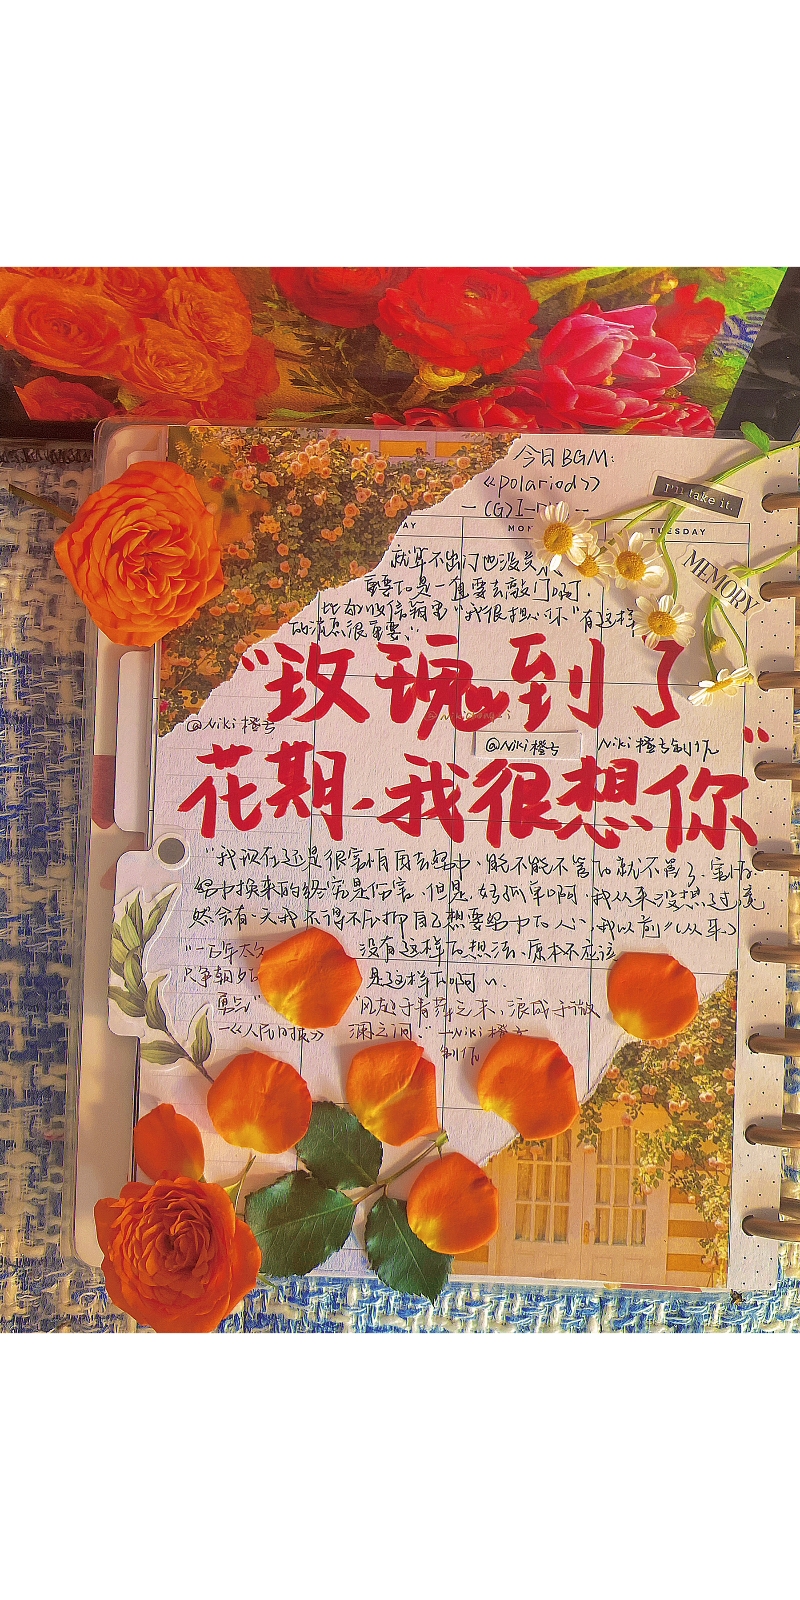 今日BGM:
《polariod》
(G)I-
I'll take it.
MON
TUESDAY
MEMORY
就算不出门也没关
重要的是一直要去敲门啊.
比如收信箱里"我很想你"有这样
的消息很重要."
"玫瑰到了
@Niki橙亏
@Niki橙亏
Niki橙亏制作
花期.我很想你"
"我现在还是很害怕因去努力.能不能不管的就不管了.害怕
努力换来的终究是伤害.但是.好孤单啊.我从来没想过竟
然会有一天我不得不压抑自己想要努力的心.我以前(从来)
没有这样的想法.原本不应该
是这样的啊".
"一万年太久
只争朝夕
勇气"
—《人民日报》
"风起于青萍之末,浪成于微
澜之间."—Niki橙亏
制作